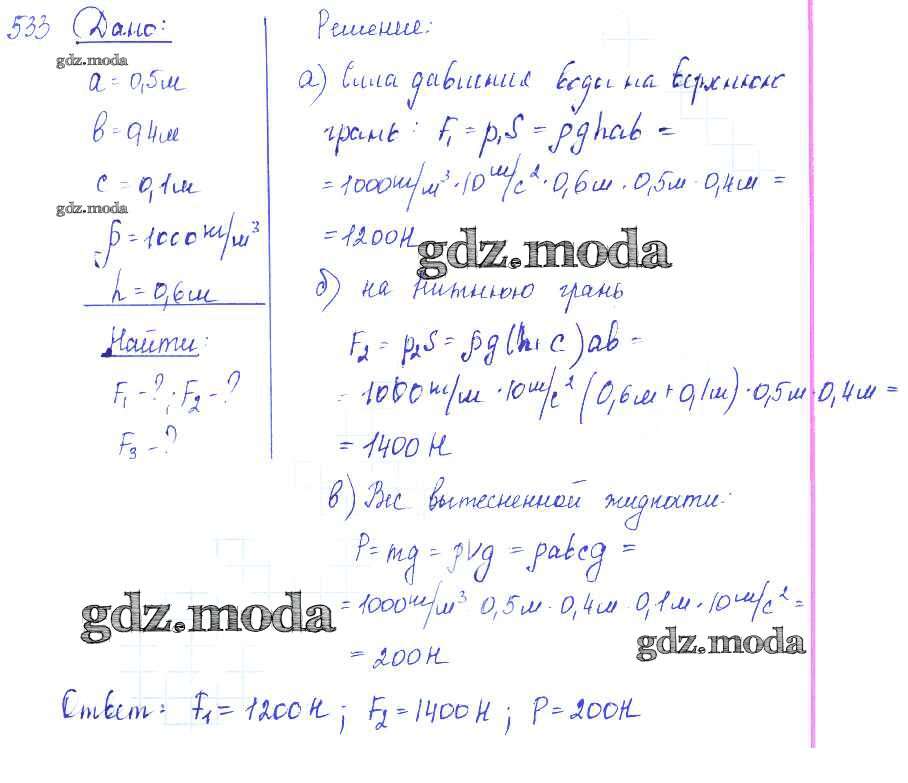 533 Дано:
gdz.moda
a = 0,5м
b = 0,4м
c = 0,1м
gdz.moda
ρ = 1000 кг/м³
h = 0,6м
Найти:
F₁ - ? ; F₂ - ?
F₃ - ?
Решение:
а) Сила давления воды на верхнюю
грань: F₁ = p₁S = ρghab =
= 1000 кг/м³ · 10 м/с² · 0,6м · 0,5м · 0,4м =
= 1200Н
gdz.moda
б) на нижнюю грань
F₂ = p₂S = ρg(h+c)ab =
= 1000 кг/м · 10 м/с² (0,6м + 0,1м) · 0,5м · 0,4м =
= 1400 Н
в) Вес вытесненной жидкости:
P = mg = ρVg = ρabcg =
= 1000 кг/м³ 0,5м · 0,4м · 0,1м · 10 м/с² =
gdz.moda
gdz.moda
= 200Н
Ответ: F₁ = 1200Н ; F₂ = 1400Н ; P = 200Н